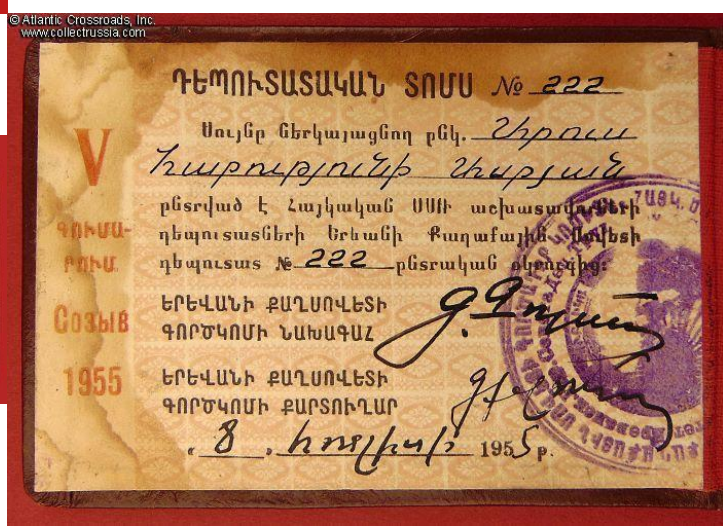 © Atlantic Crossroads, Inc.
www.collectrussia.com
ԴԵՊՈՒՏԱՏԱԿԱՆ ՏՈՄՍ № 222
Սույնը ներկայացնող ընկ.
Հարությունի
ընտրված է Հայկական ՍՍՌ աշխատավորների
դեպուտատների Երևանի Քաղաքային Սովետի
դեպուտատ № 222 ընտրական օկրուգից:
ԵՐԵՎԱՆԻ ՔԱՂՍՈՎԵՏԻ
ԳՈՐԾԿՈՄԻ ՆԱԽԱԳԱՀ
ԵՐԵՎԱՆԻ ՔԱՂՍՈՎԵՏԻ
ԳՈՐԾԿՈՄԻ ՔԱՐՏՈՒՂԱՐ
8 հուլիսի 1955 թ.
V
ԳՈՒՄԱ-
ՐՈՒՄ
Созыв
1955